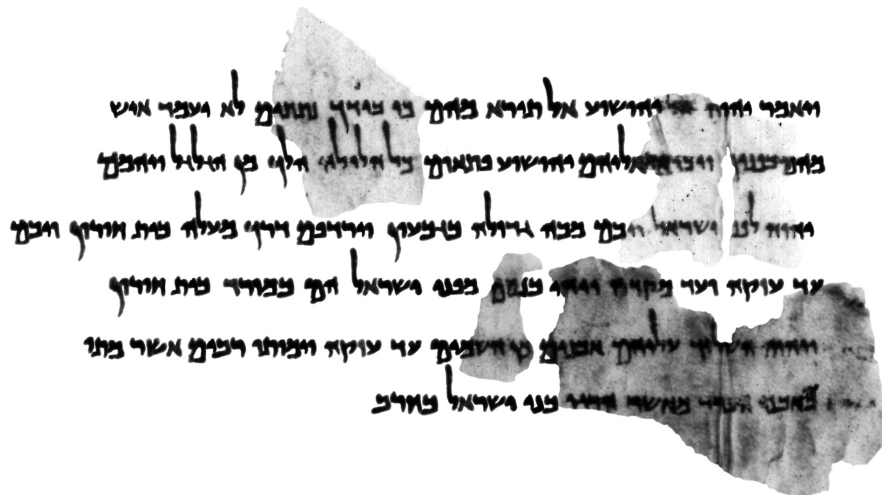 ויאמר יהוה אל יהושוע אל תירא מהם כי בידך נתתים לא יעמד איש
מהם בפניך ויבא אליהם יהושוע פתאום כל הלילה הלך מן הגלגל ויהמם
יהוה לפני ישראל ויכם מכה גדולה בגבעון וירדפם דרך מעלה בית חורון ויכם
עד עזקה ועד מקדה ויהי בנסם מפני ישראל הם במורד בית חורון
ויהוה השליך עליהם אבנים מן השמים עד עזקה וימותו רבים אשר מתו
באבני הברד מאשר הרגו בני ישראל בחרב